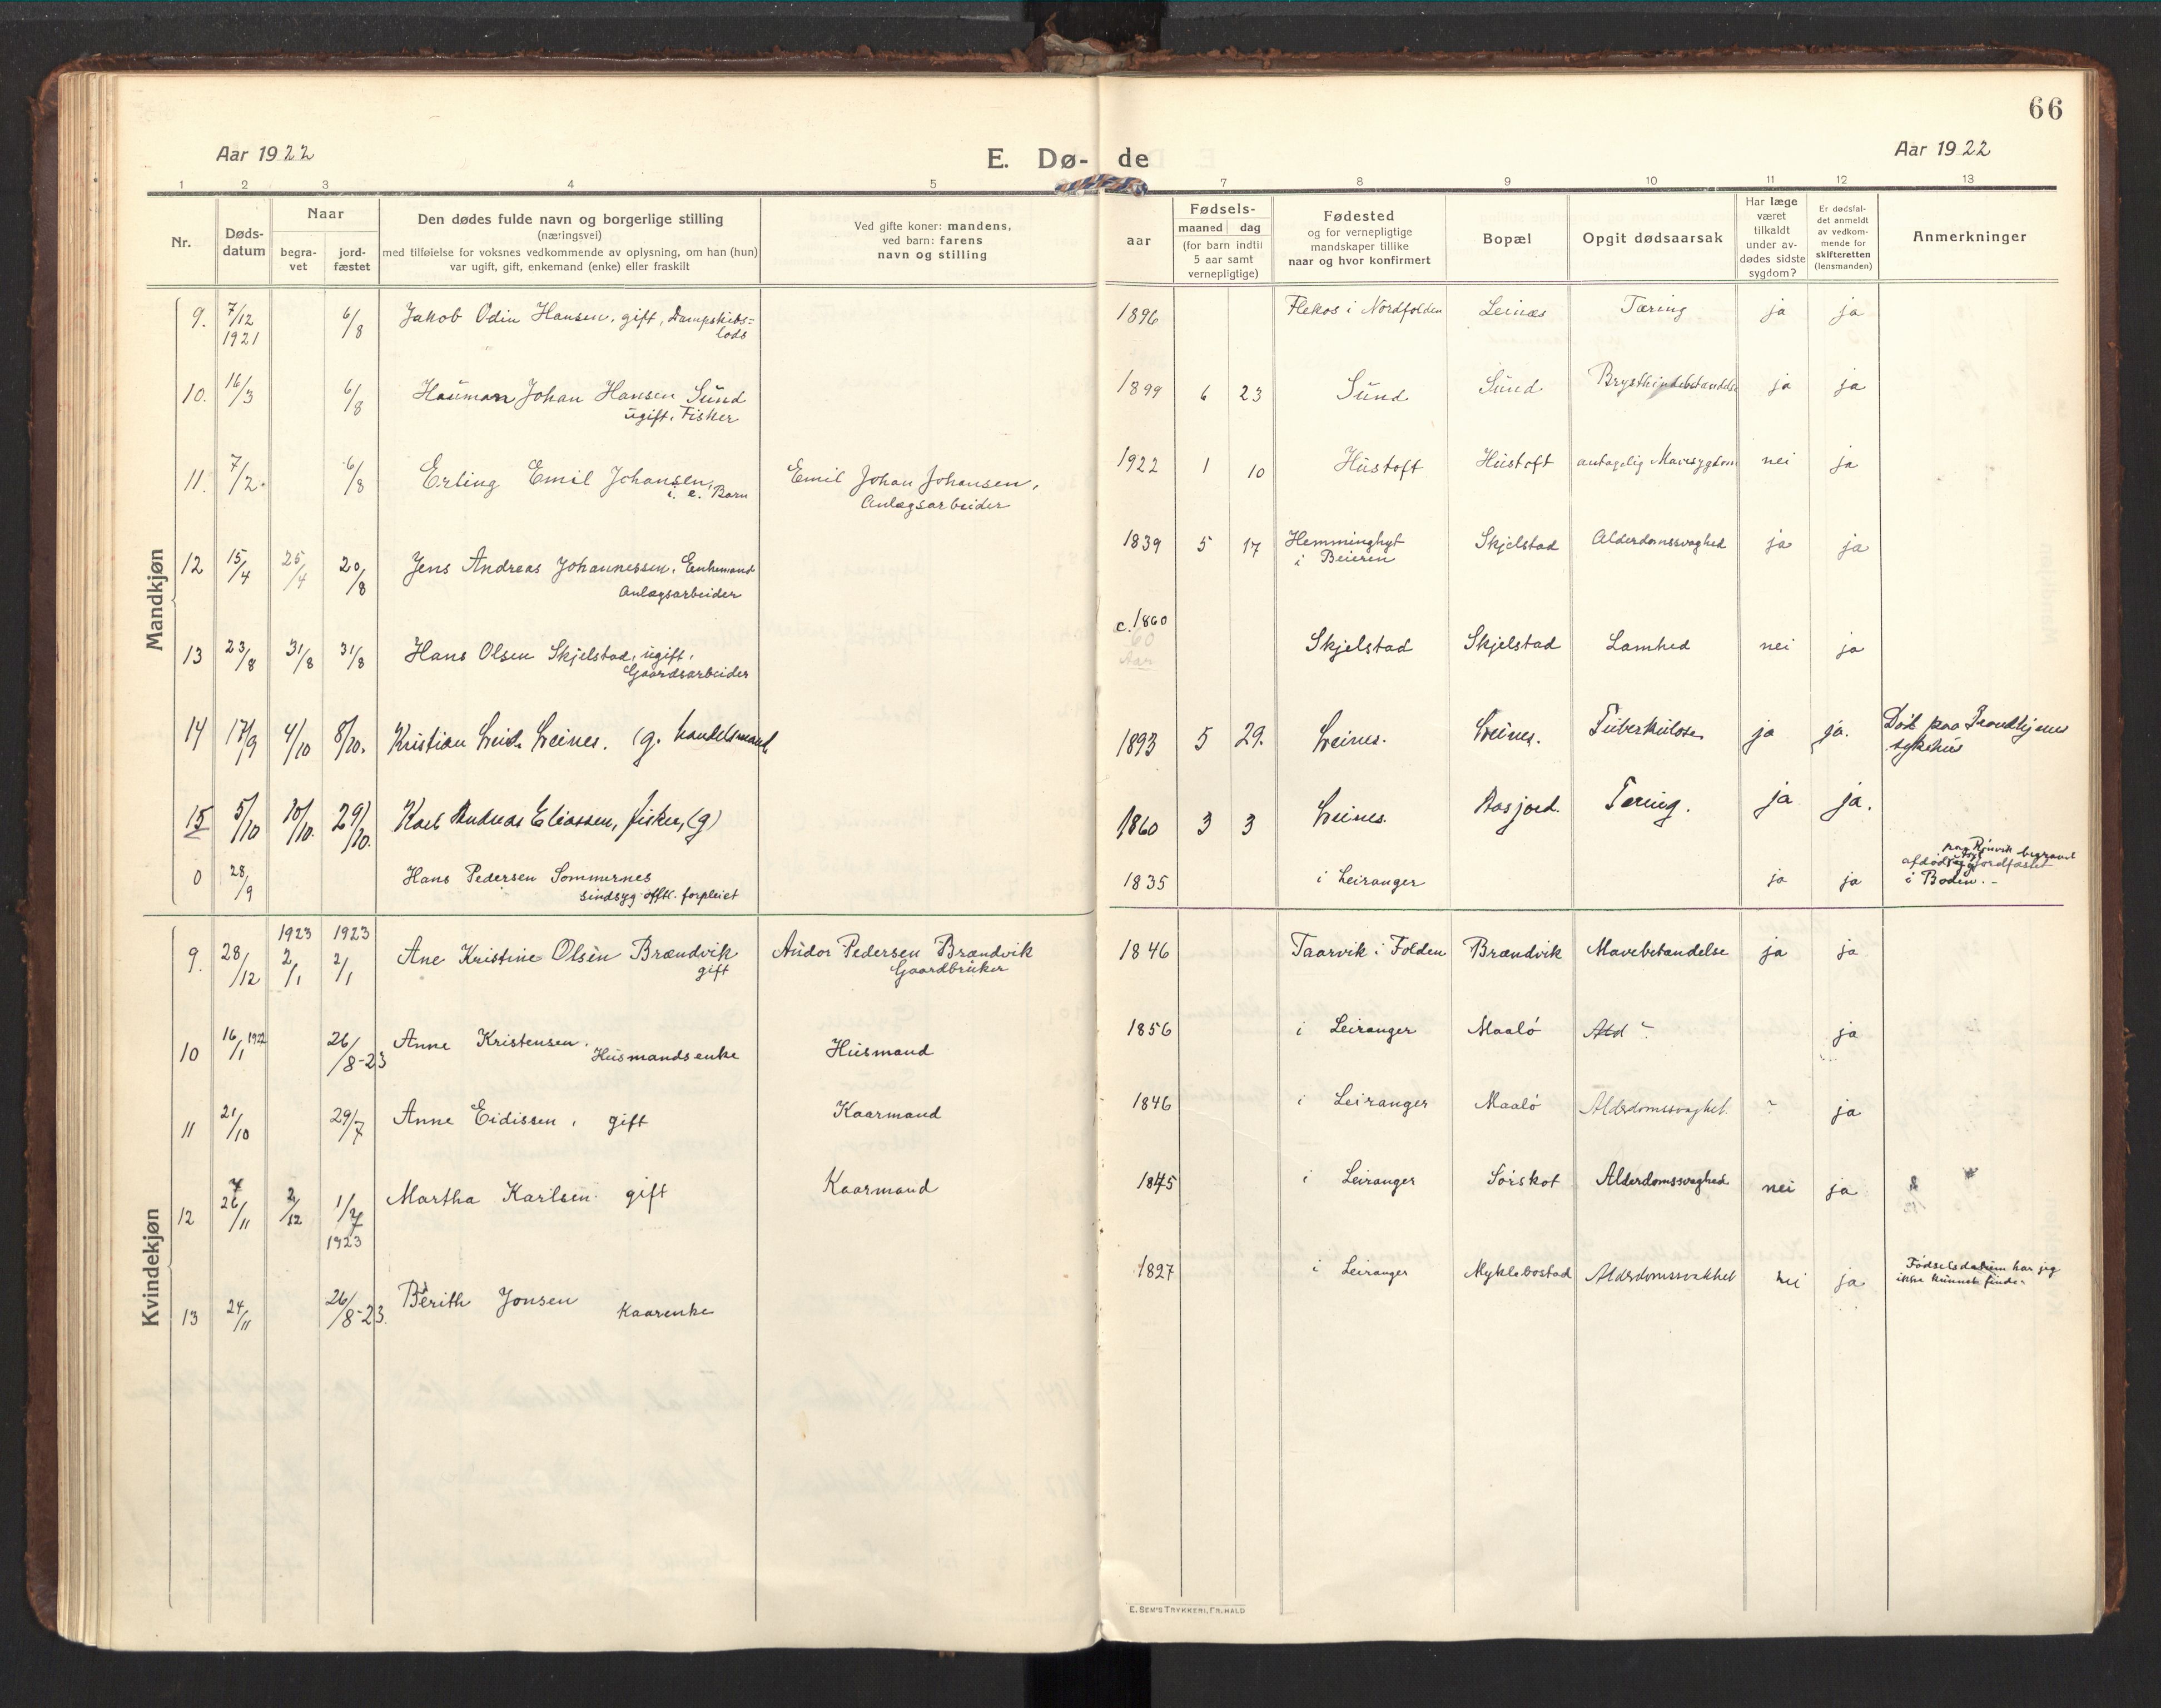 66
Aar 1922
E. Dø- de
Aar 1922
1 2 3 4 5 7 8 9 10 11 12 13
Nr.
Døds-
datum
Naar
begra-
vet
jord-
fæstet
Den dødes fulde navn og borgerlige stilling
(næringsvei)
med tilføielse for voksnes vedkommende av oplysning, om han (hun)
var ugift, gift, enkemand (enke) eller fraskilt
Ved gifte koner: mandens,
ved barn: farens
navn og stilling
aar
Fødsels-
maaned dag
(for barn indtil
5 aar samt
vernepligtige)
Fødested
og for vernepligtige
mandskaper tillike
naar og hvor konfirmert
Bopæl
Opgit dødsaarsak
Har læge
været
tilkaldt
under av-
dødes sidste
sygdom?
Er dødsfal-
det anmeldt
av vedkom-
mende for
skifteretten
(lensmanden)
Anmerkninger
Mandkjøn
9. 7/12 6/8 Jakob Odin Hansen, gift, Dampskibs= 1896 Flekos i Nordfolden Leinæs Tæring ja ja
1921 lods
10. 16/3 6/8 Haüman Johan Hansen Sünd 1899 6 23 Sünd Sünd Brysthindebetændelse ja ja
ügift. Fisker
11. 7/2. 6/8 Erling Emil Johansen, Emil Johan Johansen, 1922 1 10 Hüstoft Hüstoft antagelig Mavesygdom nei ja
i. e. Barn Anlægsarbeider
12 15/4 25/4 20/8 Jens Andreas Johannessen, Enkemand 1839 5 17 Hemminghyt Skjelstad Alderdomssvaghed ja ja
Anlægsarbeider i Beieren
c. 1860
60
Aar
13 23/8 31/8 31/8 Hans Olsen Skjelstad, ügift, Skjelstad Skjelstad Lamhed nei ja
Gaardsarbeider
14 17/9 4/10 8/10. Kristian Leines. (g. handelsmand 1893 5 29. Leines. Leines. Tüberkülose ja ja. Død paa Trondhjems
sykehüs
15 5/10 10/10. 29/10. Karl Andreas Eliassen, fisker, (g) 1860 3 3 Leines. Aasjord. Tæring. ja ja.
0 28/9 Hans Pedersen Sommernes 1835 i Leiranger ja ja paa Rönvik begravet
sindsyg offtl. forpleiet afdöd og jordfæstet
i Bodin.-
Kvindekjøn
1923 1923
9. 28/12 2/1 2/1 Ane Kristine Olsen Brændvik Andor Pedersen Brændvik 1846 Taarvik i Folden Brændvik Mavebetændelse ja ja
gift Gaardbrüker
10 16/1 1922 26/8-23 Anne Kristensen, Hüsmandsenke Hüsmand 1856 i Leiranger Maalö Ald ? ja
11 21/10 29/7 Anne Eidissen, gift Kaarmand 1846 i Leiranger Maalö Alderdomssvaghet. ? ja
12 26/11 2/12 1/7 Martha Karlsen. gift Kaarmand 1845 i Leiranger Sörskot Alderdomssvaghed nei ja
1923
13 24/11 26/8-23. Berith Jonsen Kaarenke 1827 i Leiranger Myklebostad Alderdomssvakhet nei ja Födselsdatüm har jeg
ikke künnet finde.
E. SEM'S TRYKKERI, FR.HALD